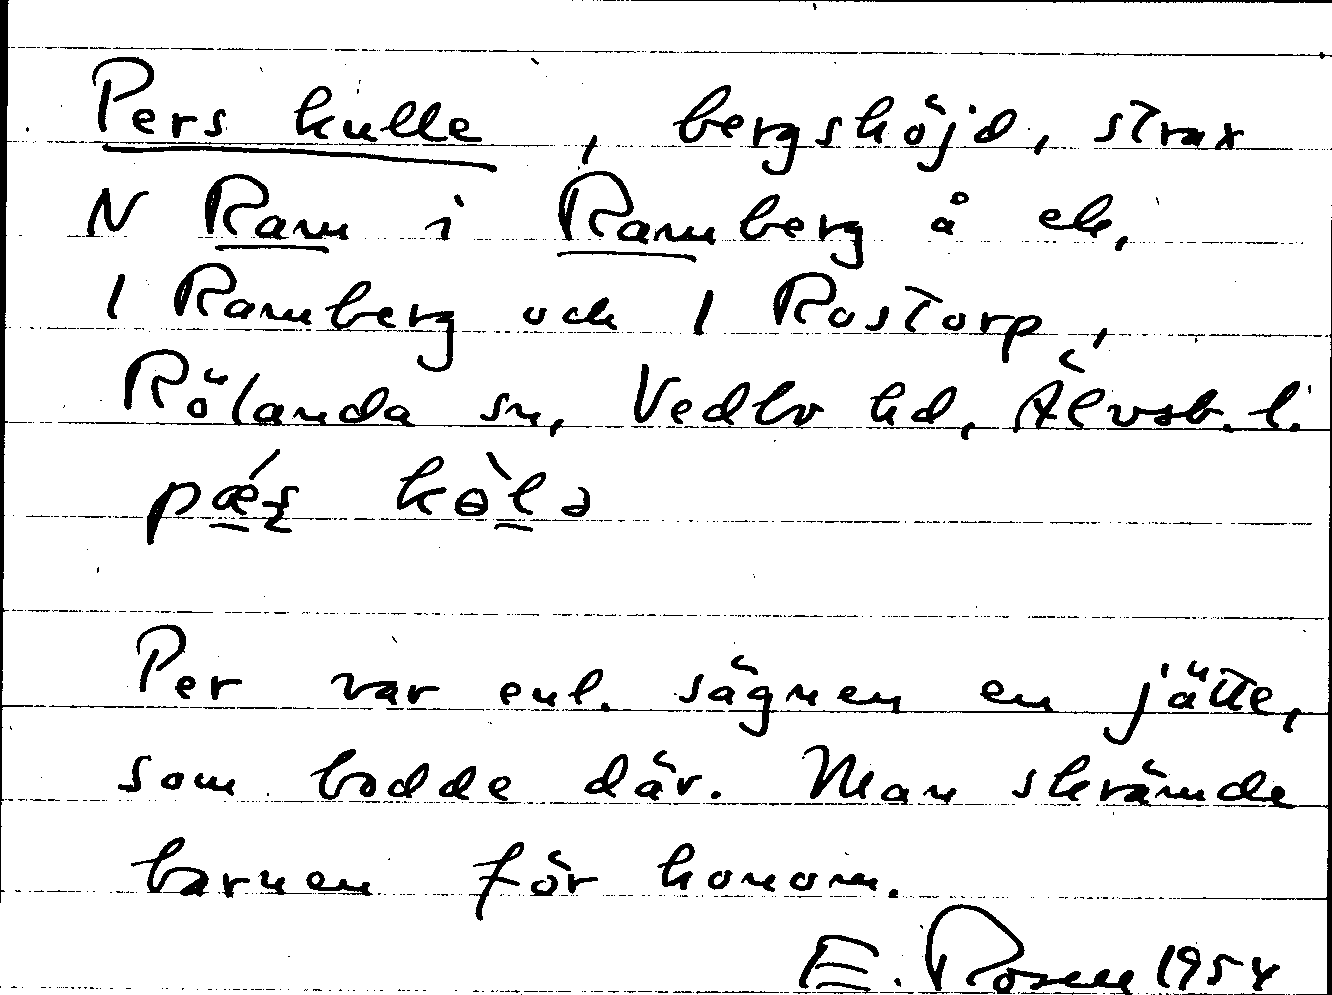 Pers kulle, bergshöjd, strax
N Ram i Ramberg å ek,
1 Ramberg och 1 Rostorp,
Rölanda sn, Vedbo hd, Älvsb. l.
Per var enl. sägnen en jätte,
som bodde där. Man skrämde
barnen för honom.
E. Rosell 1954